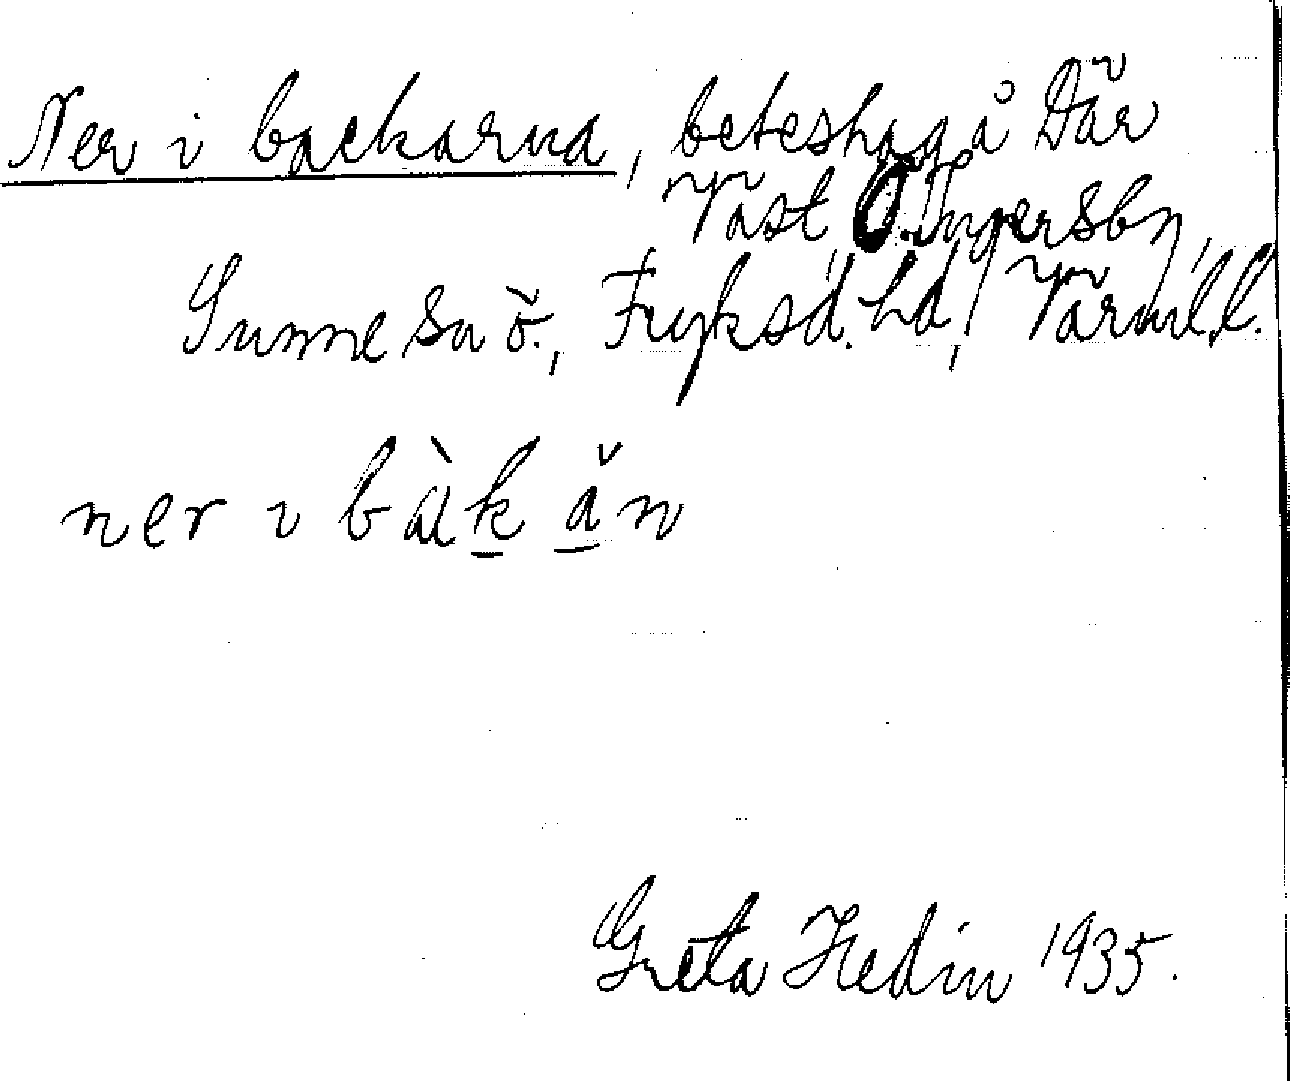 Ner i backarna, beteshag å Där
Väst, Ö. Ingersby,
Sunne sn ö., Fryksd. hd, Värml. l.
ner i bàk ǎn
Greta Hedin 1935.